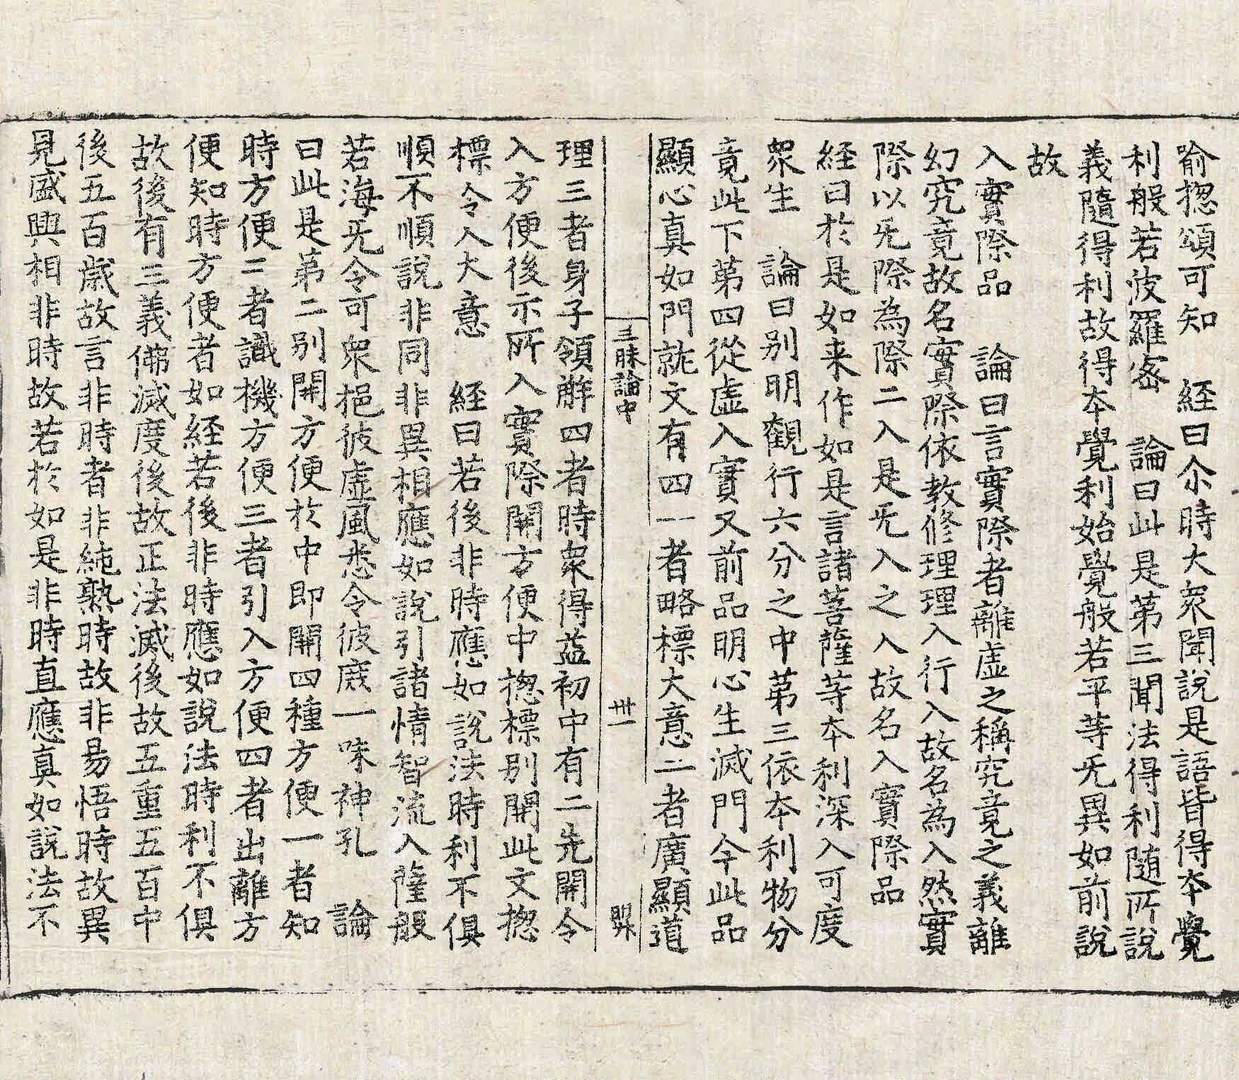 喻捴頌可知　經曰尒時大衆聞說是語皆得夲覺
利般若波羅宻　論曰此是第三聞法得利隨所說
義隨得利故得夲覺利始覺般若平等旡異如前說
故
入實際品　論曰言實際者離虛之稱究竟之義離
幻究竟故名實際依教修理理入行入故名為入然實
際以旡際為際二入是旡入之入故名入實際品
経曰於是如来作如是言諸菩薩等夲利深入可度
衆生　論曰別明觀行六分之中第三依夲利物分
竟此下第四從虛入實又前品明心生滅門今此品
顯心真如門就文有四一者略標大意二者廣顯道
三昧論中　卅一
理三者身子領解四者時衆得益初中有二先開令
入方便後示所入實際開方便中捴標別開此文捴
標令入大意　経曰若後非時應如說法時利不俱
順不順說非同非異相應如說引諸情智流入薩般
若海旡令可衆挹彼虛風悉令彼庻一味神孔　論
曰此是第二別開方便於中即開四種方便一者知
時方便二者識機方便三者引入方便四者出離方
便知時方便者如経若後非時應如說法時利不俱
故後有三義佛滅度後故正法滅後故五重五百中
後五百歲故言非時者非純熟時故非易悟時故異
見盛興相非時故若於如是非時直應真如說法不